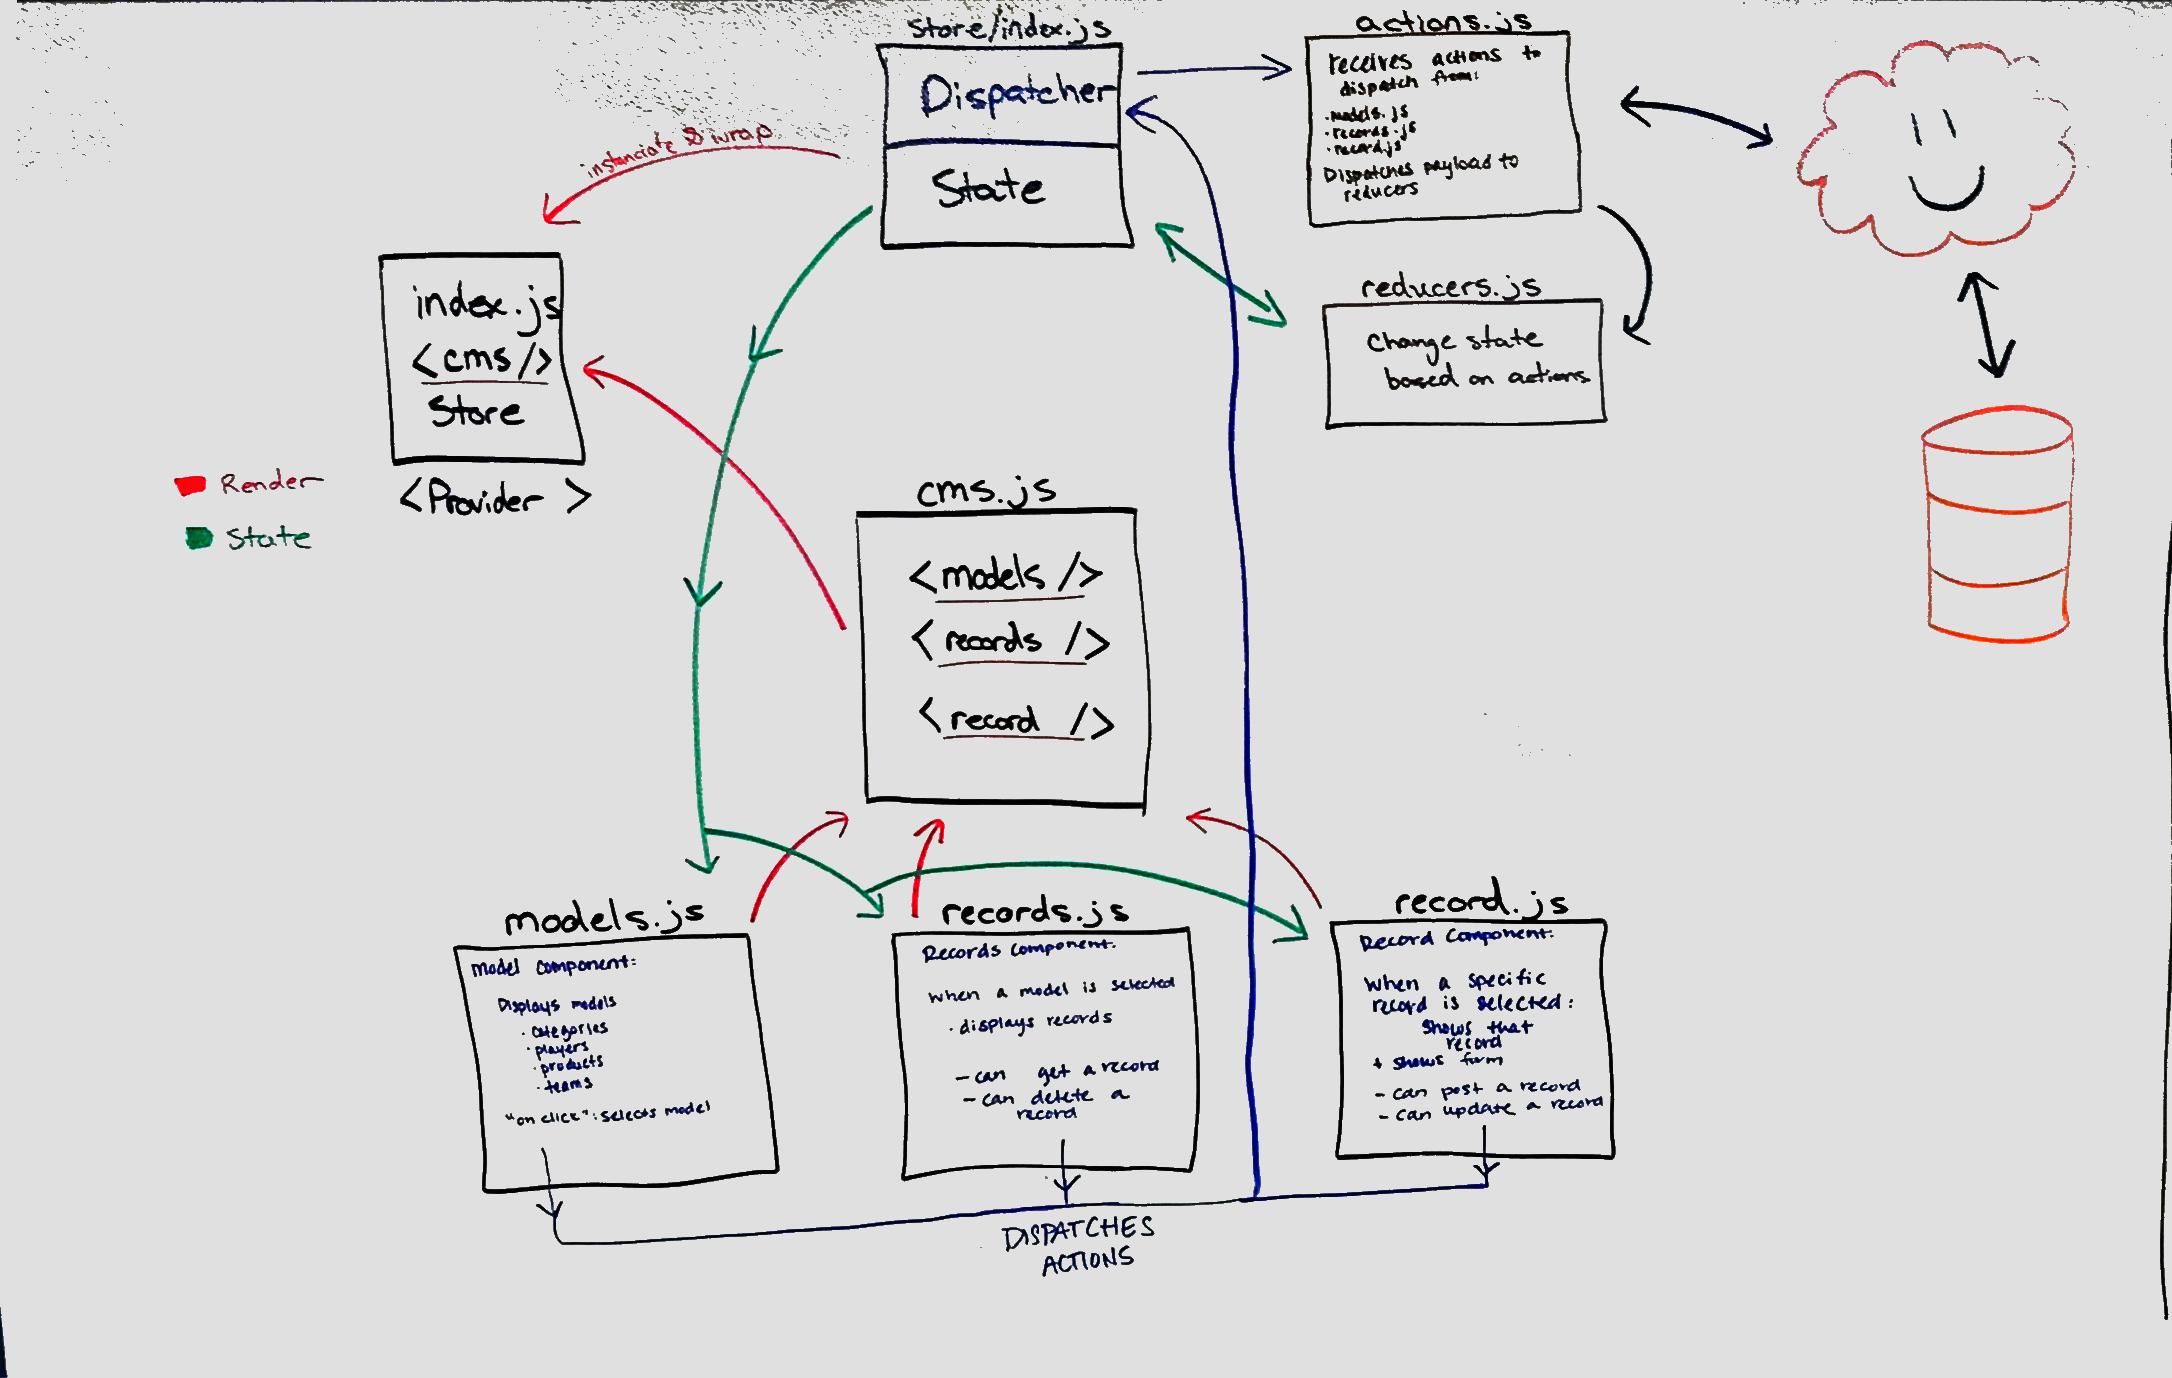 Store/index.js
Dispatcher
State
actions.js
receives actions to
dispatch from:
·models.js
·records.js
·record.js
Dispatches payload to
reducers
instanciate & wrap
index.js
<cms/>
Store
<Provider >
reducers.js
Change state
based on actions
Render
State
cms.js
<models />
<records />
<record />
models.js
Model component:
Displays models
·categories
·players
·products
·teams
"on click": selects model
records.js
Records component:
When a model is selected
·displays records
- can get a record
- can delete a
record
record.js
Record Component:
When a specific
record is selected:
shows that
record
+ shows form
- can post a record
- can update a record
DISPATCHES
ACTIONS